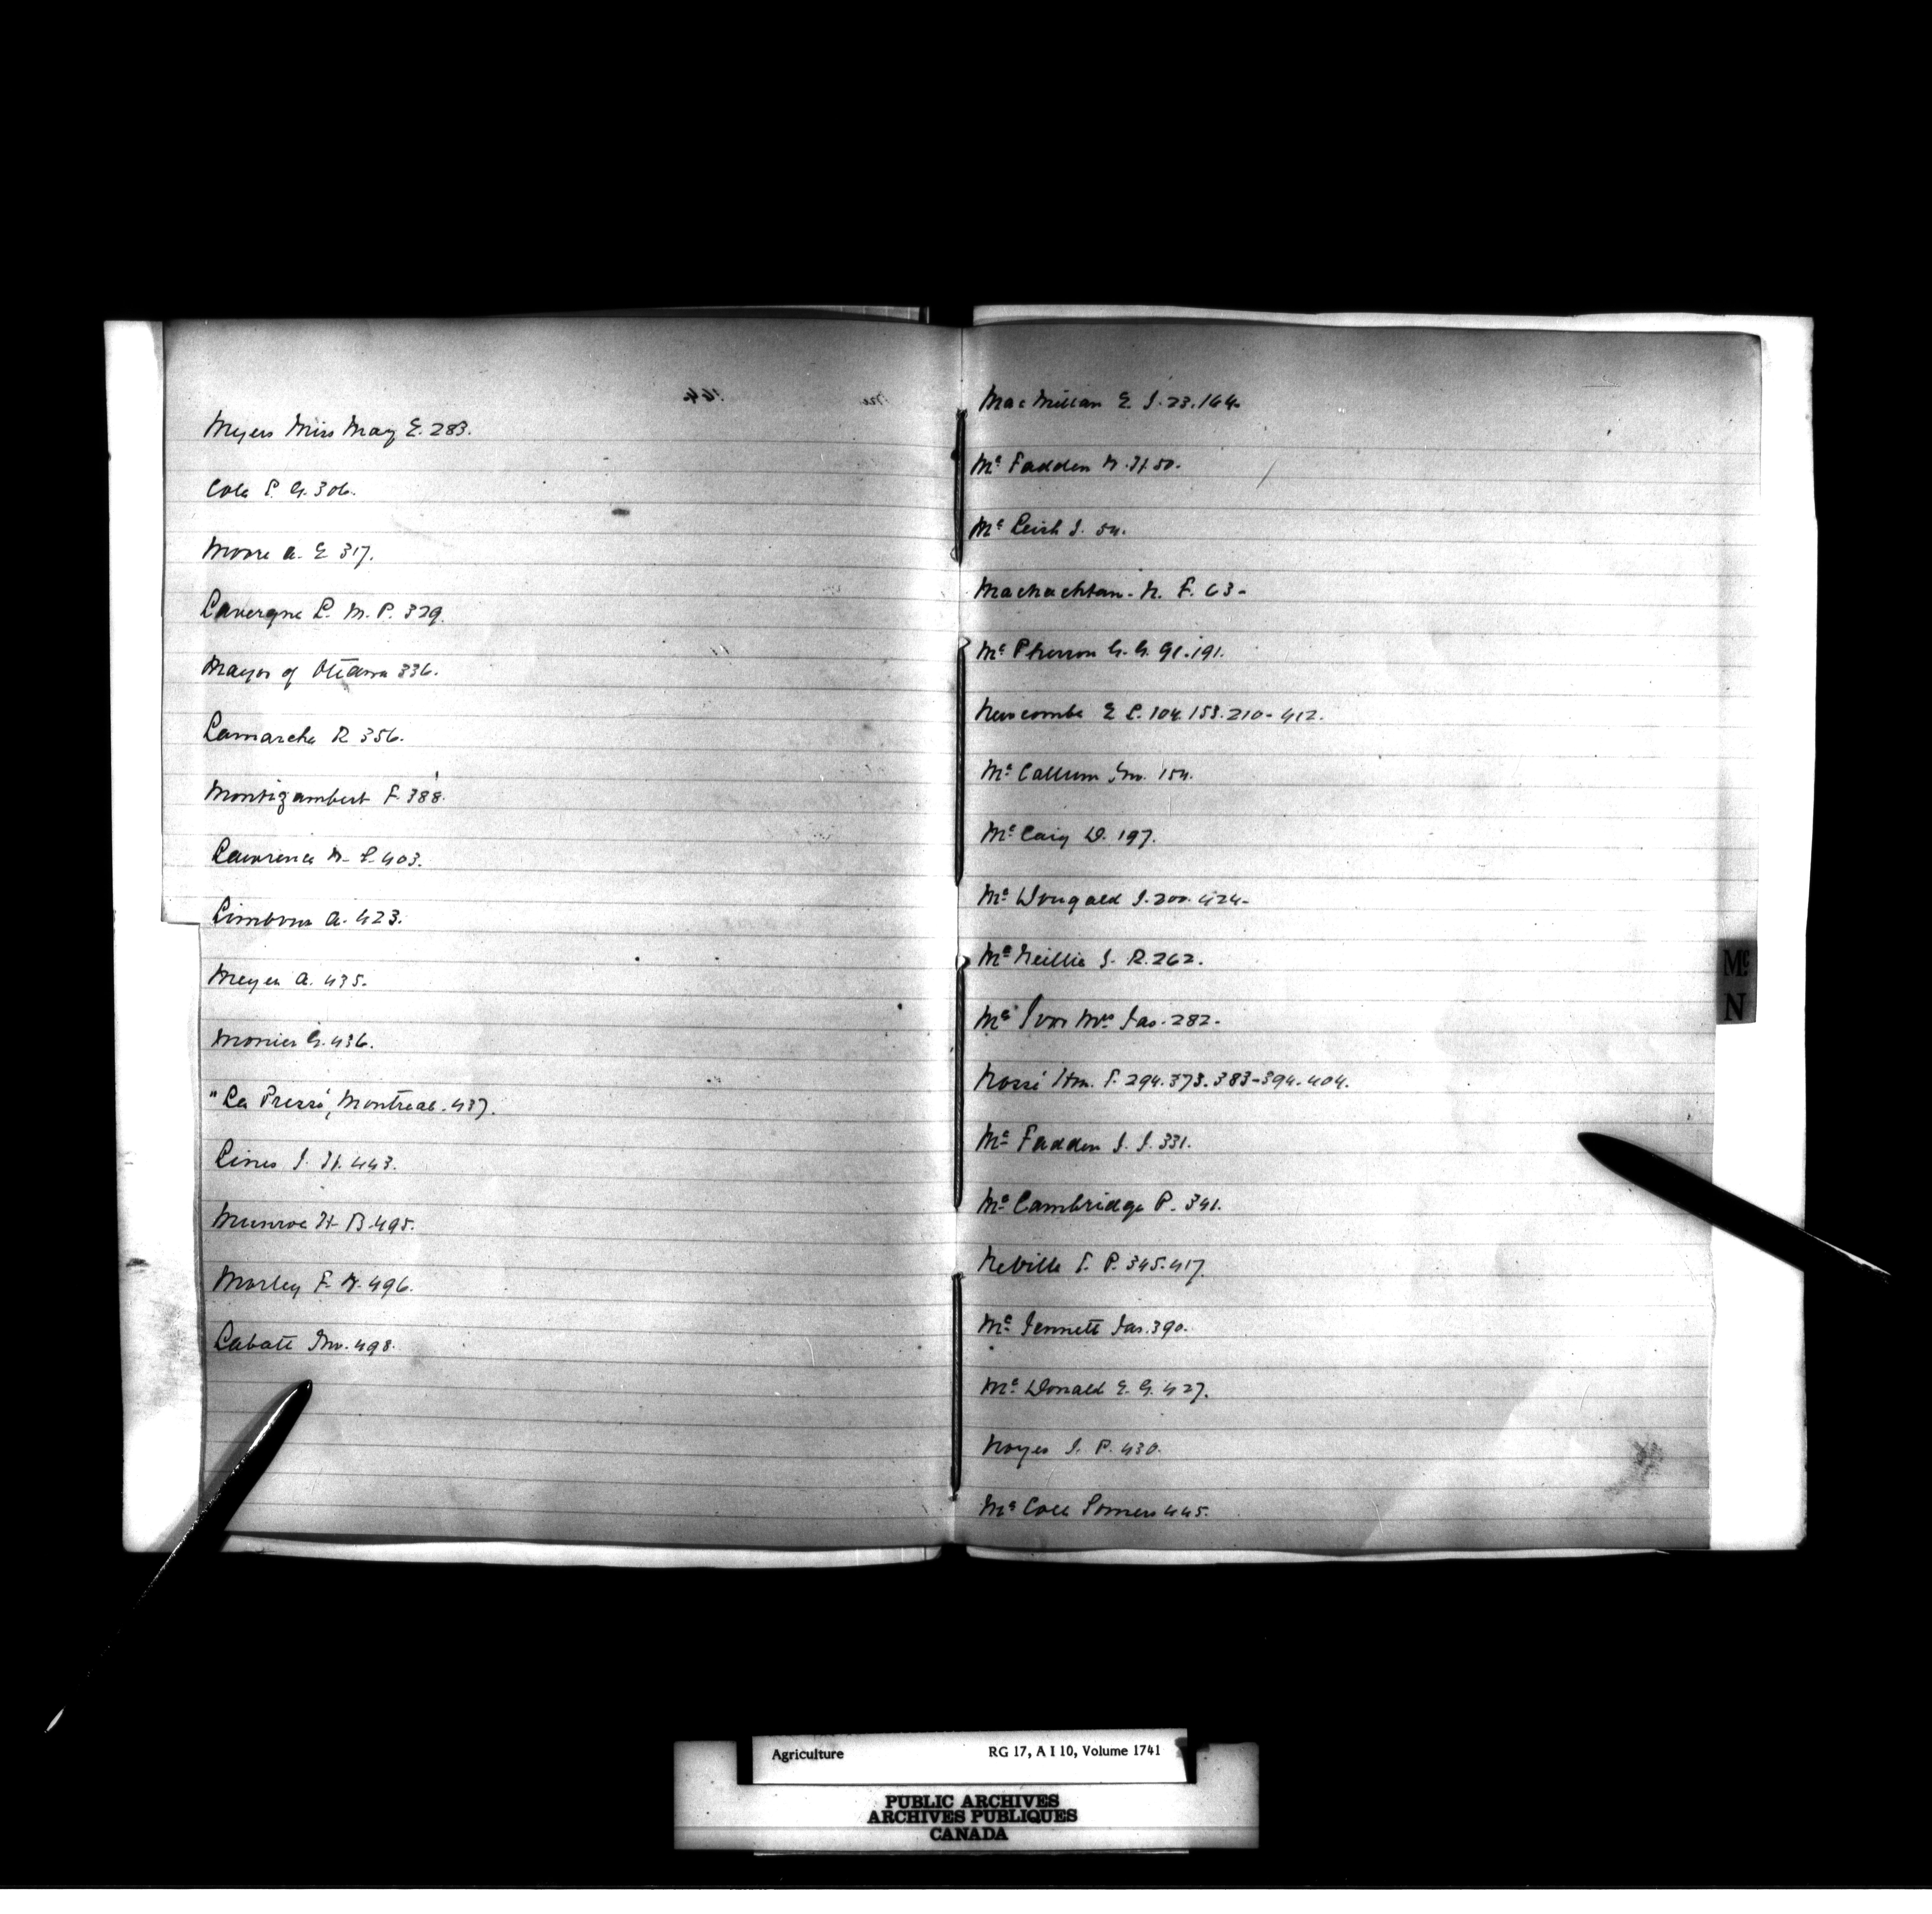 Myers Miss May E. 283.
Cole P. G. 306.
Moore A. E 317.
Lavergne L. M. P. 329.
Mayor of Ottawa 336.
Lamarche R 356.
Montizambert F. 388.
Lawrence W. L. 403.
A. 423.
Meyer A. 435.
Monier G. 436.
"La Presse, Montreal. 437.
Lines J. H. 443.
Munroe H. B. 495.
Morley F. W. 496.
Labatt Jno. 498.
MacMillan E. J. 23. 164.
Mc Fadden W. H 50.
Mc Leish J. 54.
MacNachtan. N. F. 63-
Mc Pherson G. G. 91. 191.
Newcombe E L. 104. 158. 210- 412.
Mc Callum Jno. 154.
Mc Caig D. 197.
Mc Dougald J. 200. 424-
Mc Neillie J. R. 262.
Mc Ivor Mrs Jas. 282-
Hon. 294. 373. 383-394. 404.
Mc Fadden J. J. 331.
Mc Cambridge P. 341.
Neville P. 345. 417.
Mc Jennett Jas. 390.
Mc Donald E. G. 427.
Noyes J. P. 430.
Mc Coll Somers 445.
Mc
N
Agriculture RG 17, A I 10, Volume 1741
PUBLIC ARCHIVES
ARCHIVES PUBLIQUES
CANADA